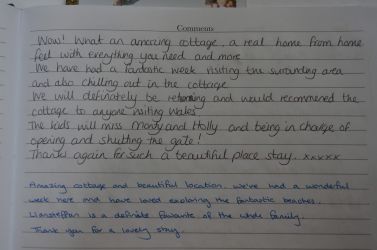 Comments
Wow! What an amazing cottage, a real home from home
feel with everything you need and more
We have had a fantastic week visiting the surrounding area
and also chilling out in the cottage
We will definately be returning and would recommened the
cottage to anyone visiting Wales
The kids will miss Monty and Holly and being in charge of
opening and shutting the gate!
Thanks again for such a beautiful place stay. xxxxx
Amazing cottage and beautiful location. We've had a wonderful
week here and have loved exploring the fantastic beaches.
Llansteffan is a definite favourite of the whole family.
Thank you for a lovely stay.